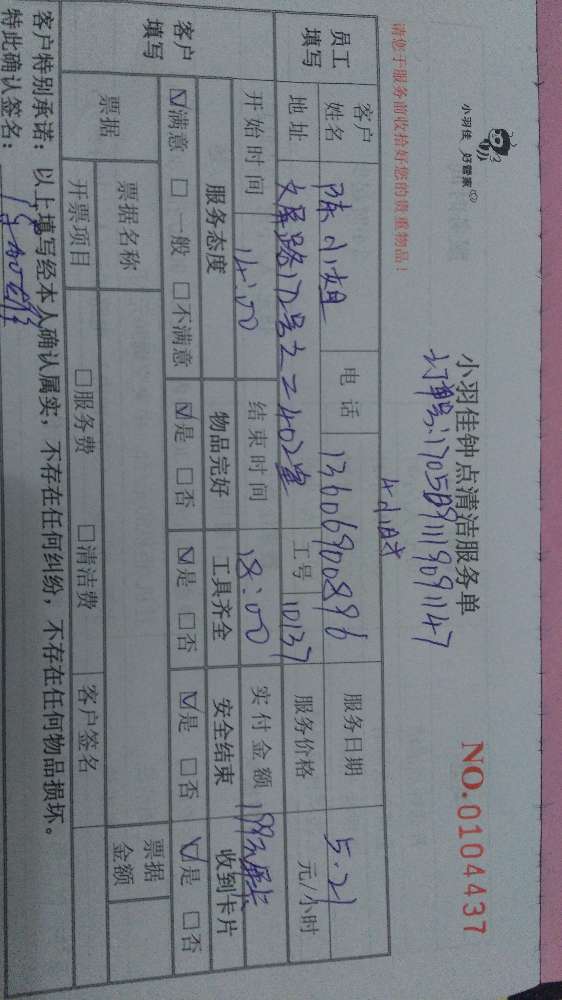 小羽佳 好管家
小羽佳钟点清洁服务单
NO.0104437
请您于服务前收拾好您的贵重物品！
4小时
员工填写
客户姓名 陈小姐 电话 13606900896 服务日期 5.21
地址 文屏路17号之二402室 工号 10137 服务价格 元/小时
开始时间 14:00 结束时间 18:00 实付金额
客户填写
服务态度 物品完好 工具齐全 安全结束 收到卡片
☑满意 □一般 □不满意 ☑是 □否 ☑是 □否 ☑是 □否 ☑是 □否
票据 票据名称 票据金额
开票项目 □服务费 □清洁费 客户签名
客户特别承诺：以上填写经本人确认属实，不存在任何纠纷，不存在任何物品损坏。
特此确认签名：